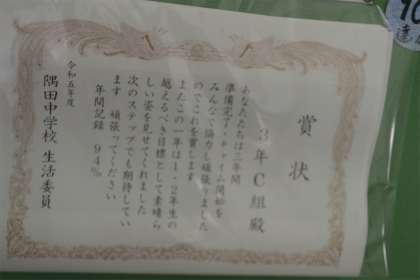 賞状
3年C組殿
あなたたちは三年間
準備完了・チャイム開始を
みんなで協力し頑張りました
のでこれを賞します
またこの一年は1・2年生の
越えるべき目標として素晴ら
しい姿を見せてくれました
次のステップでも期待してい
ます 頑張ってください
年間記録 94%
令和五年度
隅田中学校 生活委員